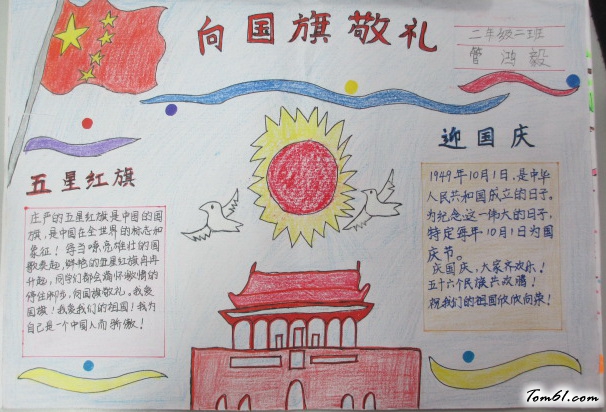 向国旗敬礼
二年级二班
管鸿毅
五星红旗
庄严的五星红旗是中国的国
旗,是中国在全世界的标志和
象征!每当嘹亮雄壮的国
歌奏起,鲜艳的五星红旗冉冉
升起,同学们都会满怀激情的
停住脚步,向国旗敬礼。我爱
国旗!我爱我们的祖国!我为
自己是一个中国人而骄傲!
迎国庆
1949年10月1日,是中华
人民共和国成立的日子。
为纪念这一伟大的日子,
特定每年10月1日为国
庆节。
庆国庆,大家齐欢乐!
五十六个民族共欢腾!
祝我们的祖国欣欣向荣!
Tom61.com